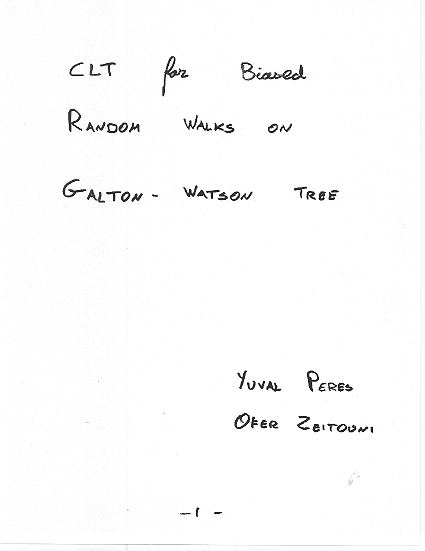 CLT for Biased
RANDOM WALKS ON
GALTON - WATSON TREE
YUVAL PERES
OFER ZEITOUNI
-1-